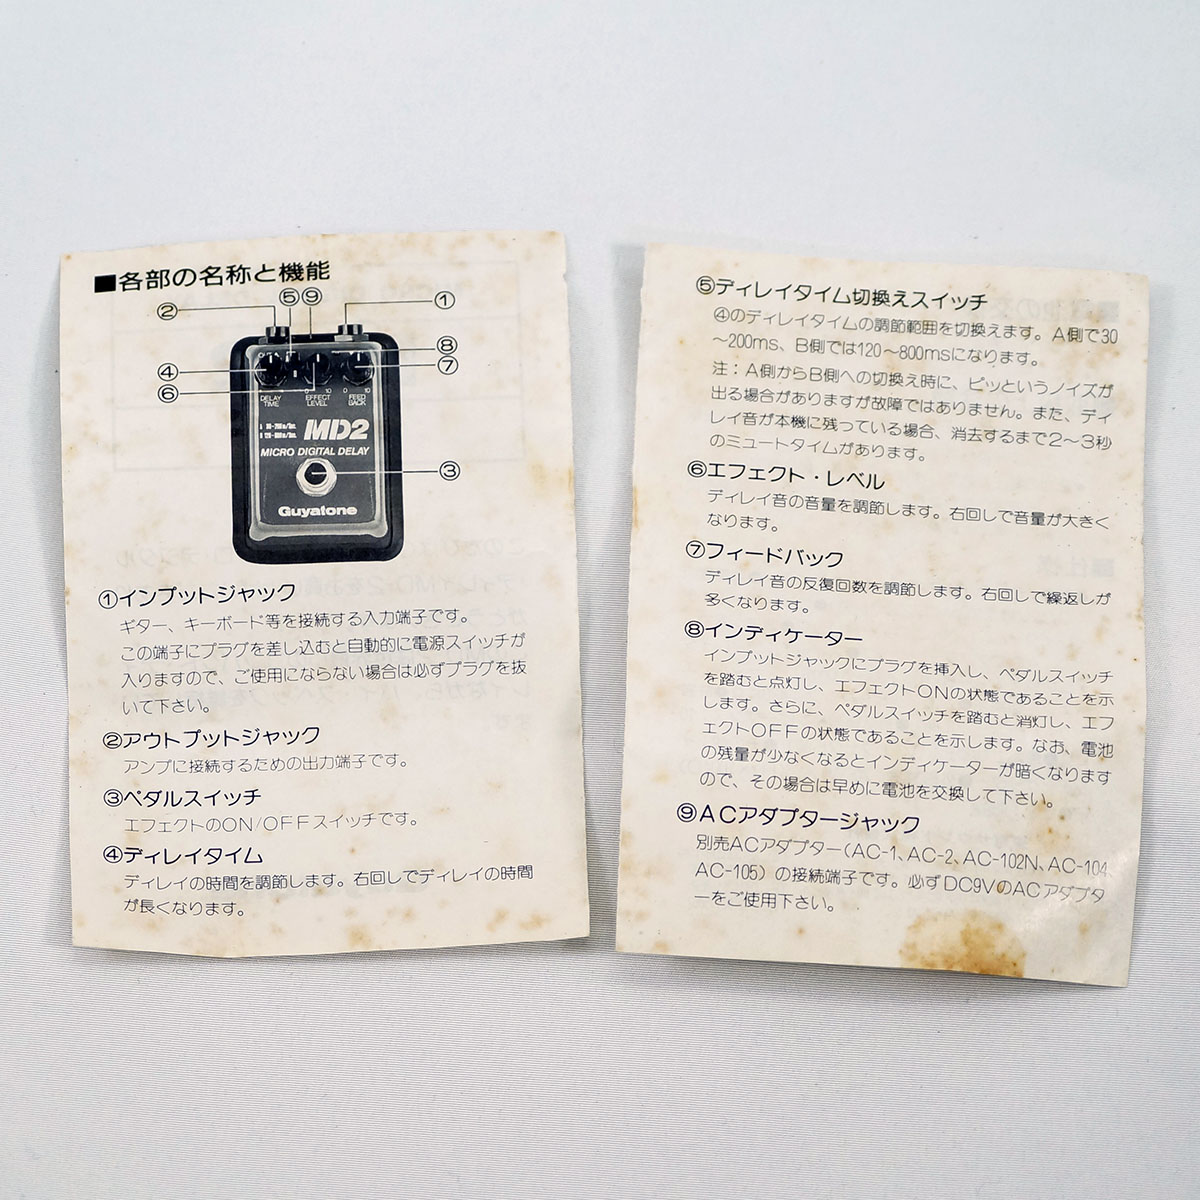 ■各部の名称と機能
② ⑤⑨ ①
④ ⑧
⑥ ⑦
DELAY TIME
EFFECT LEVEL
FEED BACK
0 10 0 10
MD2
MICRO DIGITAL DELAY
③
Guyatone
①インプットジャック
ギター、キーボード等を接続する入力端子です。
この端子にプラグを差し込むと自動的に電源スイッチが
入りますので、ご使用にならない場合は必ずプラグを抜
いて下さい。
②アウトプットジャック
アンプに接続するための出力端子です。
③ペダルスイッチ
エフェクトのON/OFFスイッチです。
④ディレイタイム
ディレイの時間を調節します。右回しでディレイの時間
が長くなります。
⑤ディレイタイム切換えスイッチ
④のディレイタイムの調節範囲を切換えます。A側で30
～200ms、B側では120～800msになります。
注：A側からB側への切換え時に、ピッというノイズが
出る場合がありますが故障ではありません。また、ディ
レイ音が本機に残っている場合、消去するまで2～3秒
のミュートタイムがあります。
⑥エフェクト・レベル
ディレイ音の音量を調節します。右回しで音量が大きく
なります。
⑦フィードバック
ディレイ音の反復回数を調節します。右回しで繰返しが
多くなります。
⑧インディケーター
インプットジャックにプラグを挿入し、ペダルスイッチ
を踏むと点灯し、エフェクトONの状態であることを示
します。さらに、ペダルスイッチを踏むと消灯し、エフ
ェクトOFFの状態であることを示します。なお、電池
の残量が少なくなるとインディケーターが暗くなります
ので、その場合は早めに電池を交換して下さい。
⑨ACアダプタージャック
別売ACアダプター（AC-1、AC-2、AC-102N、AC-104
AC-105）の接続端子です。必ずDC9VのACアダプタ
ーをご使用下さい。